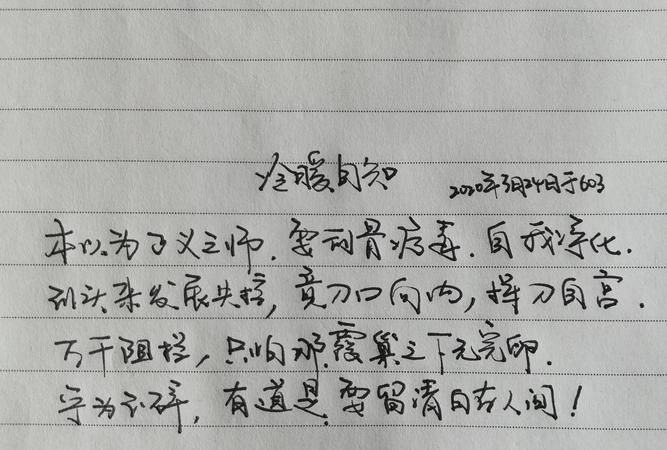 冷暖自知
2020年3月24日于603
本以为正义之师.要刮骨病毒.自我净化.
到头来发展失控,竟刀口向内,挥刀自宫.
万千阻拦,只怕那.霞巢之下无完卵.
宁为玉碎,有道是.要留清白在人间!